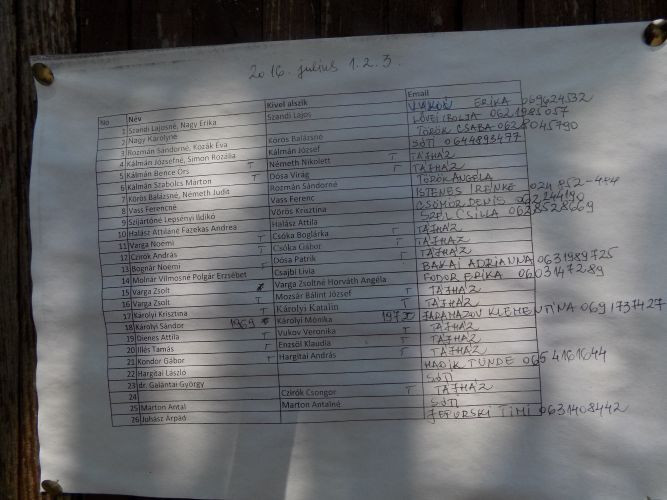 2016. július 1.2.3.
No Név Kivel alszik Email
1 Szandi Lajosné, Nagy Erika Szandi Lajos VUKOV ERIKA 069624532
2 Nagy Károlyné LŐVEI IBOLYA 0621985057
3 Rozmán Sándorné, Kozák Éva Körös Balázsné TÖRÖK CSABA 0628045790
4 Kálmán Józsefné, Simon Rozália Kálmán József SÓTI 0644893477
5 Kálmán Bence Örs T Németh Nikolett T TÁJHÁZ
6 Kálmán Szabolcs Márton T Dósa Virág T TÁJHÁZ
7 Körös Balázsné, Németh Judit Rozmán Sándorné TÖRÖK ANGÉLA
8 Vass Ferencné Vass Ferenc ISTENES IRÉNKE
9 Szijártóné Lepsényi Ildikó Vörös Krisztina CSÖMÖR DENIS
10 Halász Attiláné Fazekas Andrea Halász Attila SZÉL CSILLA 0628528669
11 Varga Noémi T Csóka Boglárka T TÁJHÁZ
12 Czirók András T Csóka Gábor T TÁJHÁZ
13 Bognár Noémi T Dósa Patrik T TÁJHÁZ
14 Molnár Vilmosné Polgár Erzsébet Csajbi Lívia BAKAI ADRIANNA 0631989725
15 Varga Zsolt Varga Zsoltné Horváth Angéla FODOR ERIKA 0603147289
16 Varga Zsolt T Mozsár Bálint József T TÁJHÁZ
17 Károlyi Krisztina T Károlyi Katalin T TÁJHÁZ
18 Károlyi Sándor 1969 Károlyi Mónika 197 KLEMENTINA 0691737427
19 Dienes Attila T Vukov Veronika T TÁJHÁZ
20 Illés Tamás T Enzsöl Klaudia T TÁJHÁZ
21 Kondor Gábor T Hargitai András T TÁJHÁZ
22 Hargitai László HADIK TÜNDE 0654161644
23 dr. Galántai György SÓTI
24 Czirók Csongor T TÁJHÁZ
25 Marton Antal Marton Antalné SÓTI
26 Juhász Árpád TIMI 0631408442